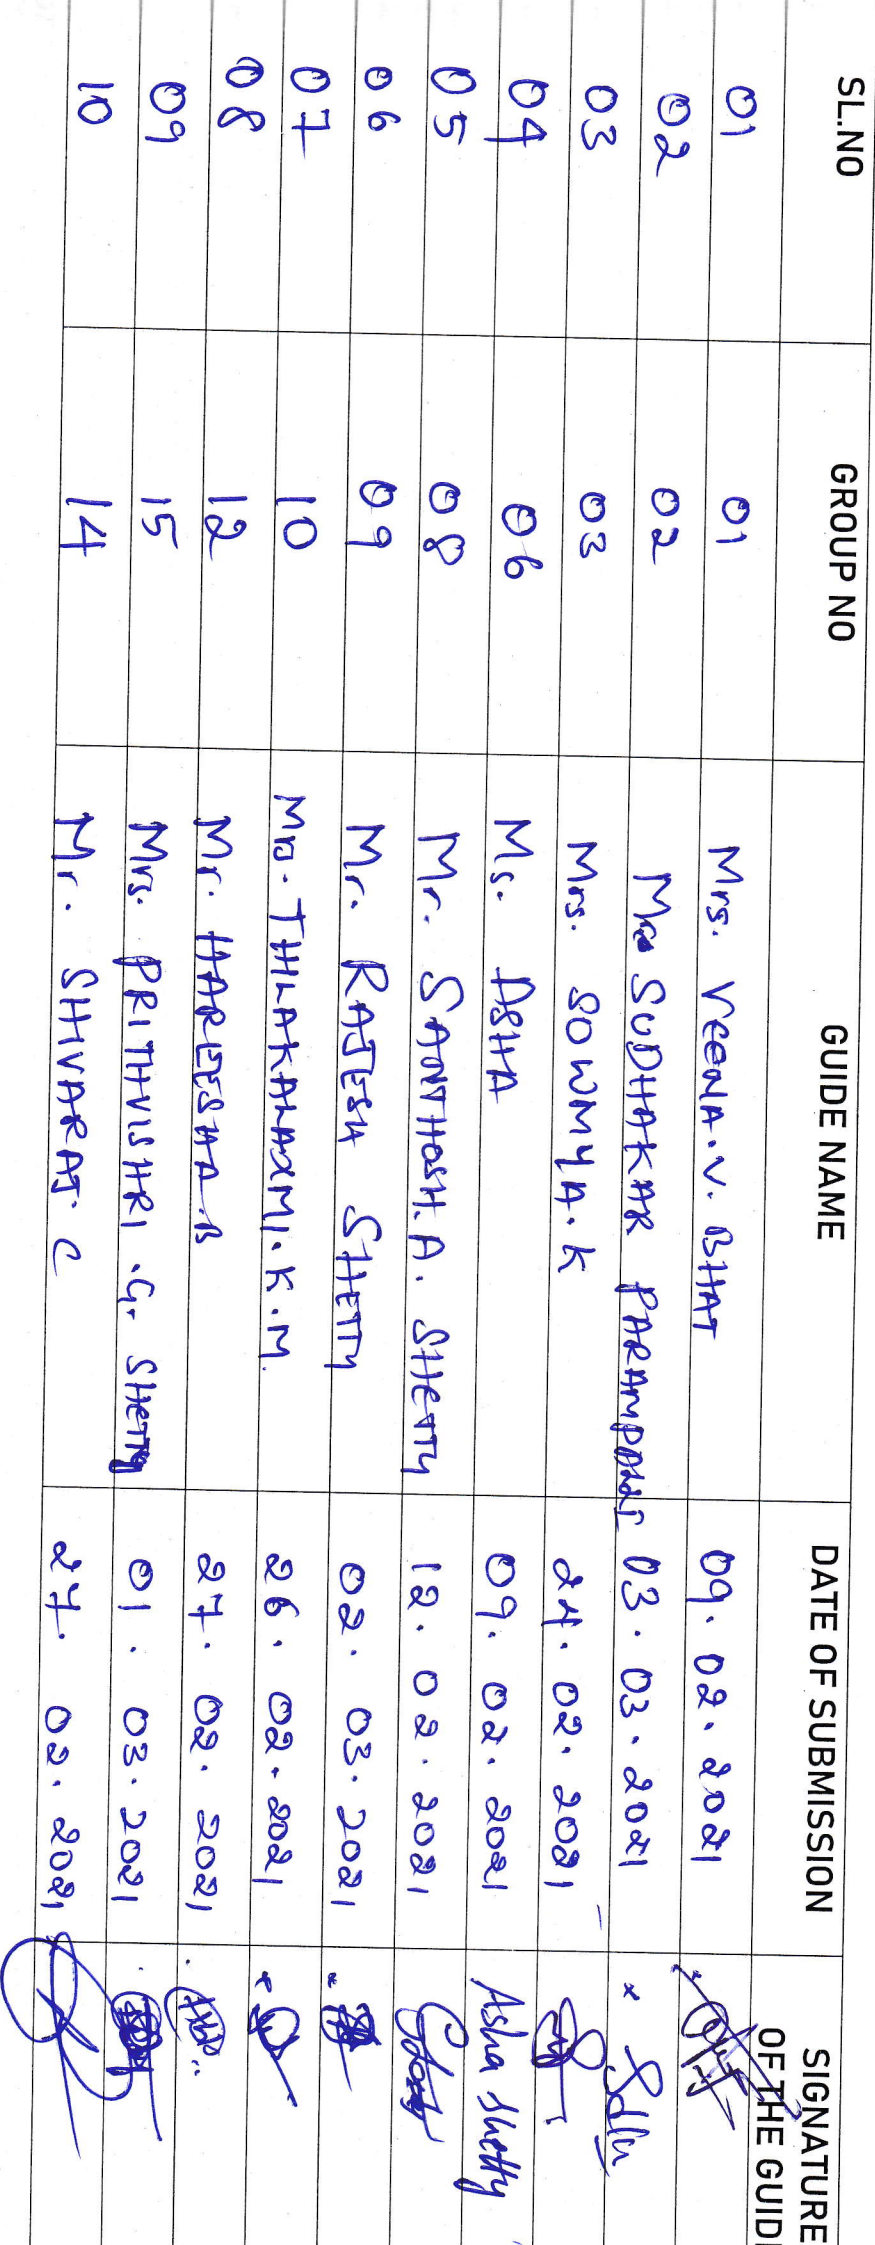 SL.NO GROUP NO GUIDE NAME DATE OF SUBMISSION SIGNATURE OF THE GUID
01 01 Mrs. VEENA.V. BHAT 09.02.2021
02 02 SUDHAKAR PARAMPALLI 03.03.2021
03 03 Mrs. SOWMYA.K 24.02.2021
04 06 Ms. ASHA 09.02.2021 Asha Shetty
05 08 Mr. SANTHOSH.A. SHETTY 12.02.2021
06 09 Mr. RAJESH SHETTY 02.03.2021
07 10 Mrs. THILAKALAXMI.K.M. 26.02.2021
08 12 Mr. HAREESHA.B 27.02.2021
09 15 Mrs. PRITHVISHRI.G. SHETTY 01.03.2021
10 14 Mr. SHIVARAJ.C 27.02.2021